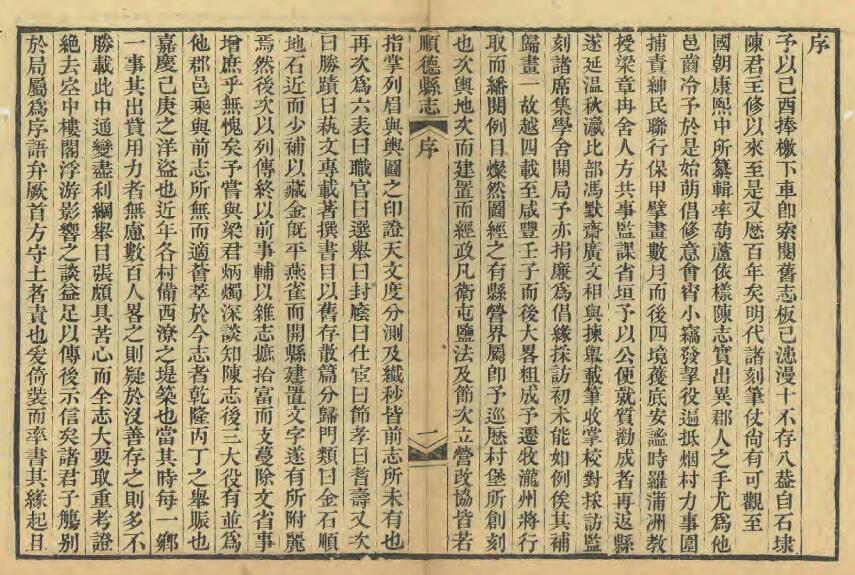 序
予以己酉捧檄下車卽索閱舊志板已漶漫十不存八葢自石埭
陳君王修以來至是又厯百年矣明代諸刻筆仗尙有可觀至
國朝康熙中所纂輯率葫蘆依樣陳志實出異郡人之手尤爲他
邑齒冷予於是始萌倡修意會甯小竊發挐役遍抵烟村力事圍
捕責紳民聯行保甲擘畫數月而後四境穫底安謐時羅蒲洲教
授梁章冉舍人方共事監課省垣予以公便就質勸成者再返縣
遂延温秋瀛比部馮默齋廣文相與揀舉載筆收掌校對採訪監
刻諸席集學舍開局予亦捐廉爲倡緣採訪初未能如例俟其補
歸畫一故越四載至咸豐壬子而後大畧粗成予遷牧瀧州將行
取而繙閱例目燦然圖經之有縣營界屬卽予巡厯村堡所創刻
也次輿地次而建置而經政凡衛屯鹽法及節次立營改協皆若
順德縣志
序
一
指掌列眉與輿圖之印證天文度分測及纖秒皆前志所未有也
再次爲六表曰職官曰選舉曰封廕曰仕宦曰節孝曰耆壽又次
曰勝蹟曰蓺文專載著撰書目以舊存散篇分歸門類曰金石順
地石近而少補以藏金旣平燕雀而開縣建置文字遂有所附麗
焉然後次以列傳終以前事輔以雜志摭拾富而支蔓除文省事
增庶乎無愧矣予嘗與梁君炳燭深談知陳志後三大役有並爲
他郡邑乘與前志所無而適薈萃於今志者乾隆丙丁之舉賑也
嘉慶己庚之洋盜也近年各村備西潦之堤築也當其時每一鄉
一事其出貲用力者無慮數百人畧之則疑於沒善存之則多不
勝載此中通變盡利綱舉目張頗具苦心而全志大要取重考證
絶去空中樓閣浮游影響之談益足以傳後示信矣諸君子觴别
於局屬爲序語弁厥首方守土者責也爰倚裝而率書其緣起且